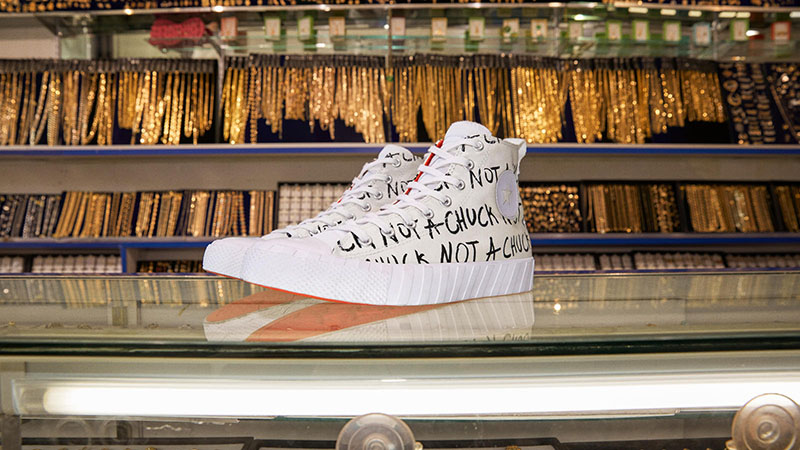 NOT A CHUCK
NOT A CHUCK NOT
CHUCK NOT A CHUCK